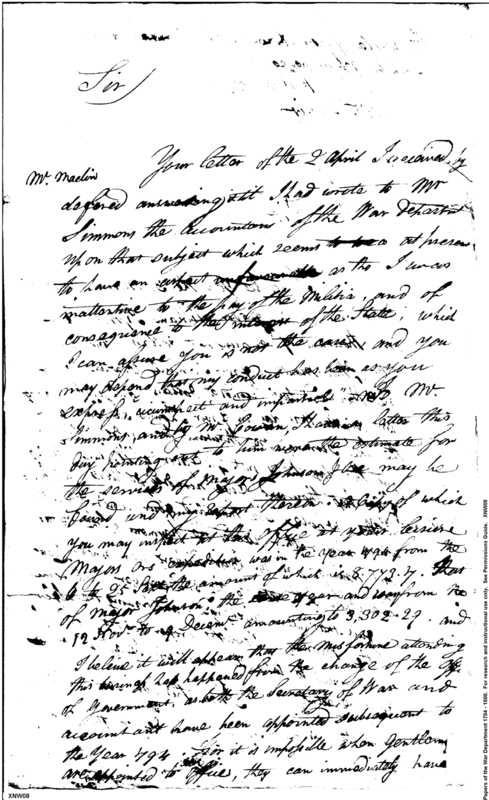 Sir
Mr. Maclin
Your letter of the 2 April I received, &
defered answering till I had wrote to Mr
Simmons the accountant of the War Department
upon that subject which seems at present
to have an aspect unfavourable as tho I was
inattentive to the pay of the Militia and of
consequence to the Interest of the State, which
I can assure you is not the case, and you
may depend that my conduct has been as you
express, circumspect and impartial
Simmons, and by Mr. letter this
day pointing out to him where the estimate for
the services of Major Johnson &c may be
found and my report thereon. a Copy of which
you may in office at your
Majors expedition was in the year 1794 from the
the amount of which is 8,772.7. That
of Major Johnson the year and was from the
12 Novr to Decemr amounting to 3,302-29. and
I beleive it will appear that the Misfortune attending
this has happened from the change of the
of Government, as both the Secretary of War and
accountant have been appointed subsequent to
the Year 794. For it is impossible when Gentlemen
are appointed to office, they can immediately have
XNW08
Papers of the War Department 1784 - 1800. For research and instructional use only. See Permissions Guide. XNW08